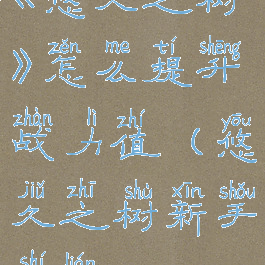 《悠久之树
》怎么提升
zěn me tí shēng
战力值（悠
zhàn lì zhí yōu
久之树新手
jiǔ zhī shù xīn shǒu
shí lián